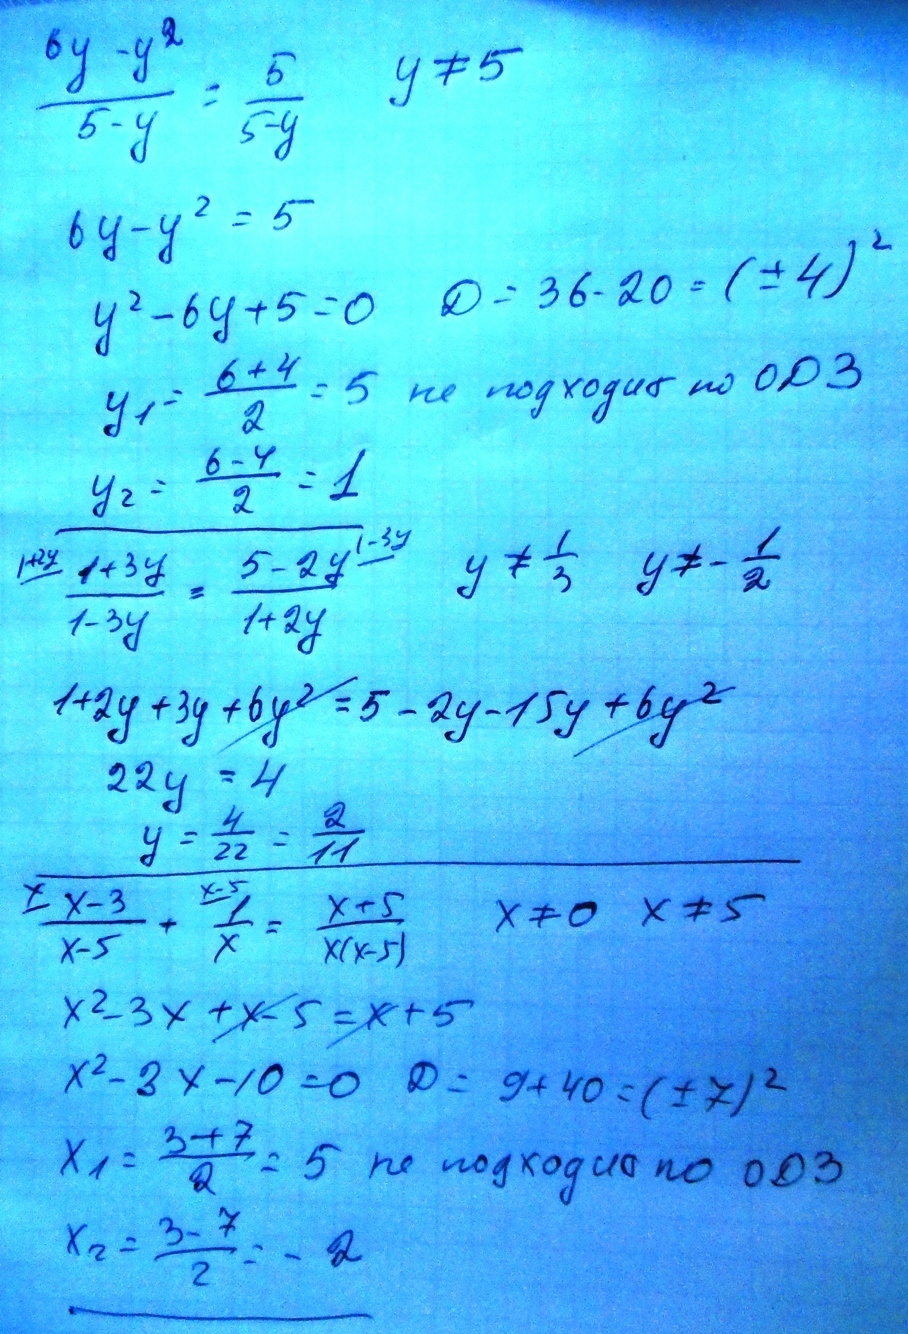 (6y - y²)/(5-y) = 5/(5-y) y ≠ 5
6y - y² = 5
y² - 6y + 5 = 0 D = 36 - 20 = (±4)²
y₁ = (6+4)/2 = 5 не подходит по ОДЗ
y₂ = (6-4)/2 = 1
1+2y (1+3y)/(1-3y) = (5-2y)/(1+2y) 1-3y y ≠ 1/3 y ≠ -1/2
1+2y+3y+6y² = 5-2y-15y+6y²
22y = 4
y = 4/22 = 2/11
x (x-3)/(x-5) + x-5 1/x = (x+5)/(x(x-5)) x ≠ 0 x ≠ 5
x² - 3x + x - 5 = x + 5
x² - 3x - 10 = 0 D = 9 + 40 = (±7)²
x₁ = (3+7)/2 = 5 не подходит по ОДЗ
x₂ = (3-7)/2 = -2